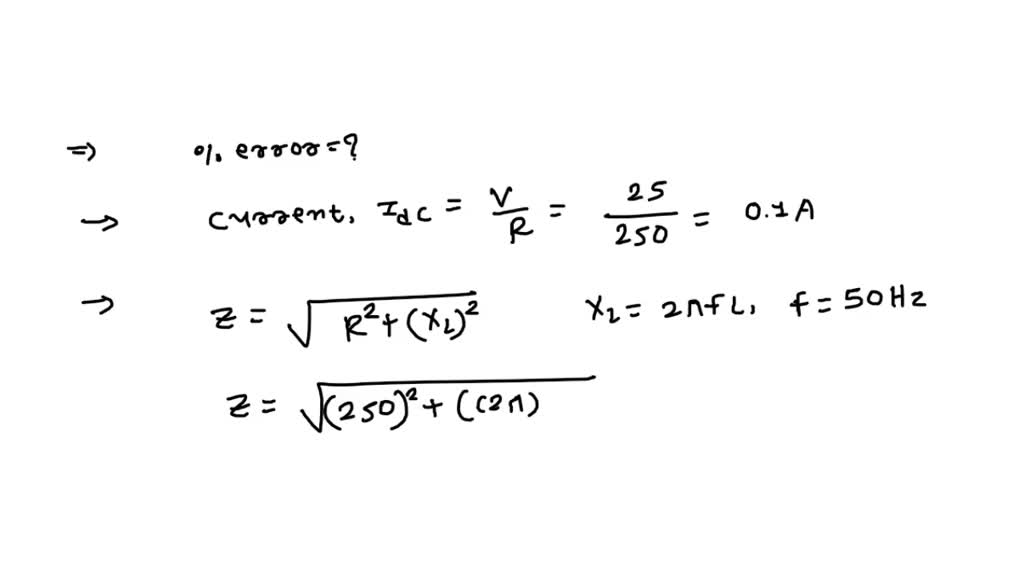 ⇒ % error = ?
→ Current, Idc = V/R = 25/250 = 0.1 A
→ Z = √(R² + (XL)²) XL = 2πfL, f = 50 Hz
Z = √((250)² + ((2π)